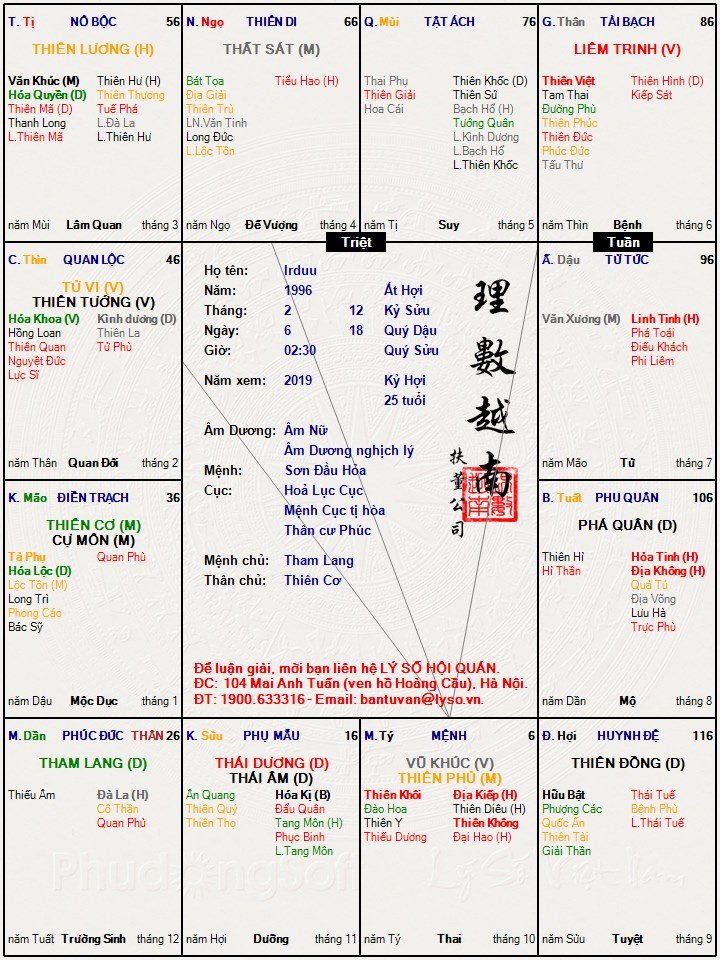 T. Tị NÔ BỘC 56
THIÊN LƯƠNG (H)
Văn Khúc (M) Thiên Hư (H)
Hóa Quyền (D) Thiên Thương
Thiên Mã (D) Tuế Phá
Thanh Long L.Đà La
L.Thiên Mã L.Thiên Hư
năm Mùi Lâm Quan tháng 3
N. Ngọ THIÊN DI 66
THẤT SÁT (M)
Bát Tọa Tiểu Hao (H)
Địa Giải
Thiên Trù
LN.Văn Tinh
Long Đức
L.Lộc Tồn
năm Ngọ Đế Vượng tháng 4
Q. Mùi TẬT ÁCH 76
Thai Phụ Thiên Khốc (D)
Thiên Giải Thiên Sứ
Hoa Cái Bạch Hổ (H)
Tướng Quân
L.Kình Dương
L.Bạch Hổ
L.Thiên Khốc
năm Tị Suy tháng 5
G. Thân TÀI BẠCH 86
LIÊM TRINH (V)
Thiên Việt Thiên Hình (D)
Tam Thai Kiếp Sát
Đường Phù
Thiên Phúc
Thiên Đức
Phúc Đức
Tấu Thư
năm Thìn Bệnh tháng 6
Triệt
Tuần
C. Thìn QUAN LỘC 46
TỬ VI (V)
THIÊN TƯỚNG (V)
Hóa Khoa (V) Kình dương (D)
Hồng Loan Thiên La
Thiên Quan Tử Phù
Nguyệt Đức
Lực Sĩ
năm Thân Quan Đới tháng 2
Họ tên: Irduu
Năm: 1996 Ất Hợi
Tháng: 2 12 Kỷ Sửu
Ngày: 6 18 Quý Dậu
Giờ: 02:30 Quý Sửu
Năm xem: 2019 Kỷ Hợi
25 tuổi
Âm Dương: Âm Nữ
Âm Dương nghịch lý
Mệnh: Sơn Đầu Hỏa
Cục: Hoả Lục Cục
Mệnh Cục tị hòa
Thân cư Phúc
Mệnh chủ: Tham Lang
Thân chủ: Thiên Cơ
理數越南
扶董公司
Để luận giải, mời bạn liên hệ LÝ SỐ HỘI QUÁN.
ĐC: 104 Mai Anh Tuấn (ven hồ Hoàng Cầu), Hà Nội.
ĐT: 1900.633316 - Email: bantuvan@lyso.vn.
Ấ. Dậu TỬ TỨC 96
Văn Xương (M) Linh Tinh (H)
Phá Toái
Điếu Khách
Phi Liêm
năm Mão Tử tháng 7
K. Mão ĐIỀN TRẠCH 36
THIÊN CƠ (M)
CỰ MÔN (M)
Tả Phụ Quan Phù
Hóa Lộc (D)
Lộc Tồn (M)
Long Trì
Phong Cáo
Bác Sỹ
năm Dậu Mộc Dục tháng 1
B. Tuất PHU QUÂN 106
PHÁ QUÂN (D)
Thiên Hỉ Hỏa Tinh (H)
Hỉ Thần Địa Không (H)
Quả Tú
Địa Võng
Lưu Hà
Trực Phù
năm Dần Mộ tháng 8
M. Dần PHÚC ĐỨC THÂN 26
THAM LANG (D)
Thiếu Âm Đà La (H)
Cô Thần
Quan Phủ
năm Tuất Trường Sinh tháng 12
K. Sửu PHỤ MẪU 16
THÁI DƯƠNG (D)
THÁI ÂM (D)
Ân Quang Hóa Kị (B)
Thiên Quý Đẩu Quân
Thiên Thọ Tang Môn (H)
Phục Binh
L.Tang Môn
năm Hợi Dưỡng tháng 11
M. Tý MỆNH 6
VŨ KHÚC (V)
THIÊN PHỦ (M)
Thiên Khôi Địa Kiếp (H)
Đào Hoa Thiên Diêu (H)
Thiên Y Thiên Không
Thiếu Dương Đại Hao (H)
năm Tý Thai tháng 10
Đ. Hợi HUYNH ĐỆ 116
THIÊN ĐỒNG (D)
Hữu Bật Thái Tuế
Phượng Các Bệnh Phù
Quốc Ấn L.Thái Tuế
Thiên Tài
Giải Thần
năm Sửu Tuyệt tháng 9
Phudongsoft
Lý Số Việt Nam